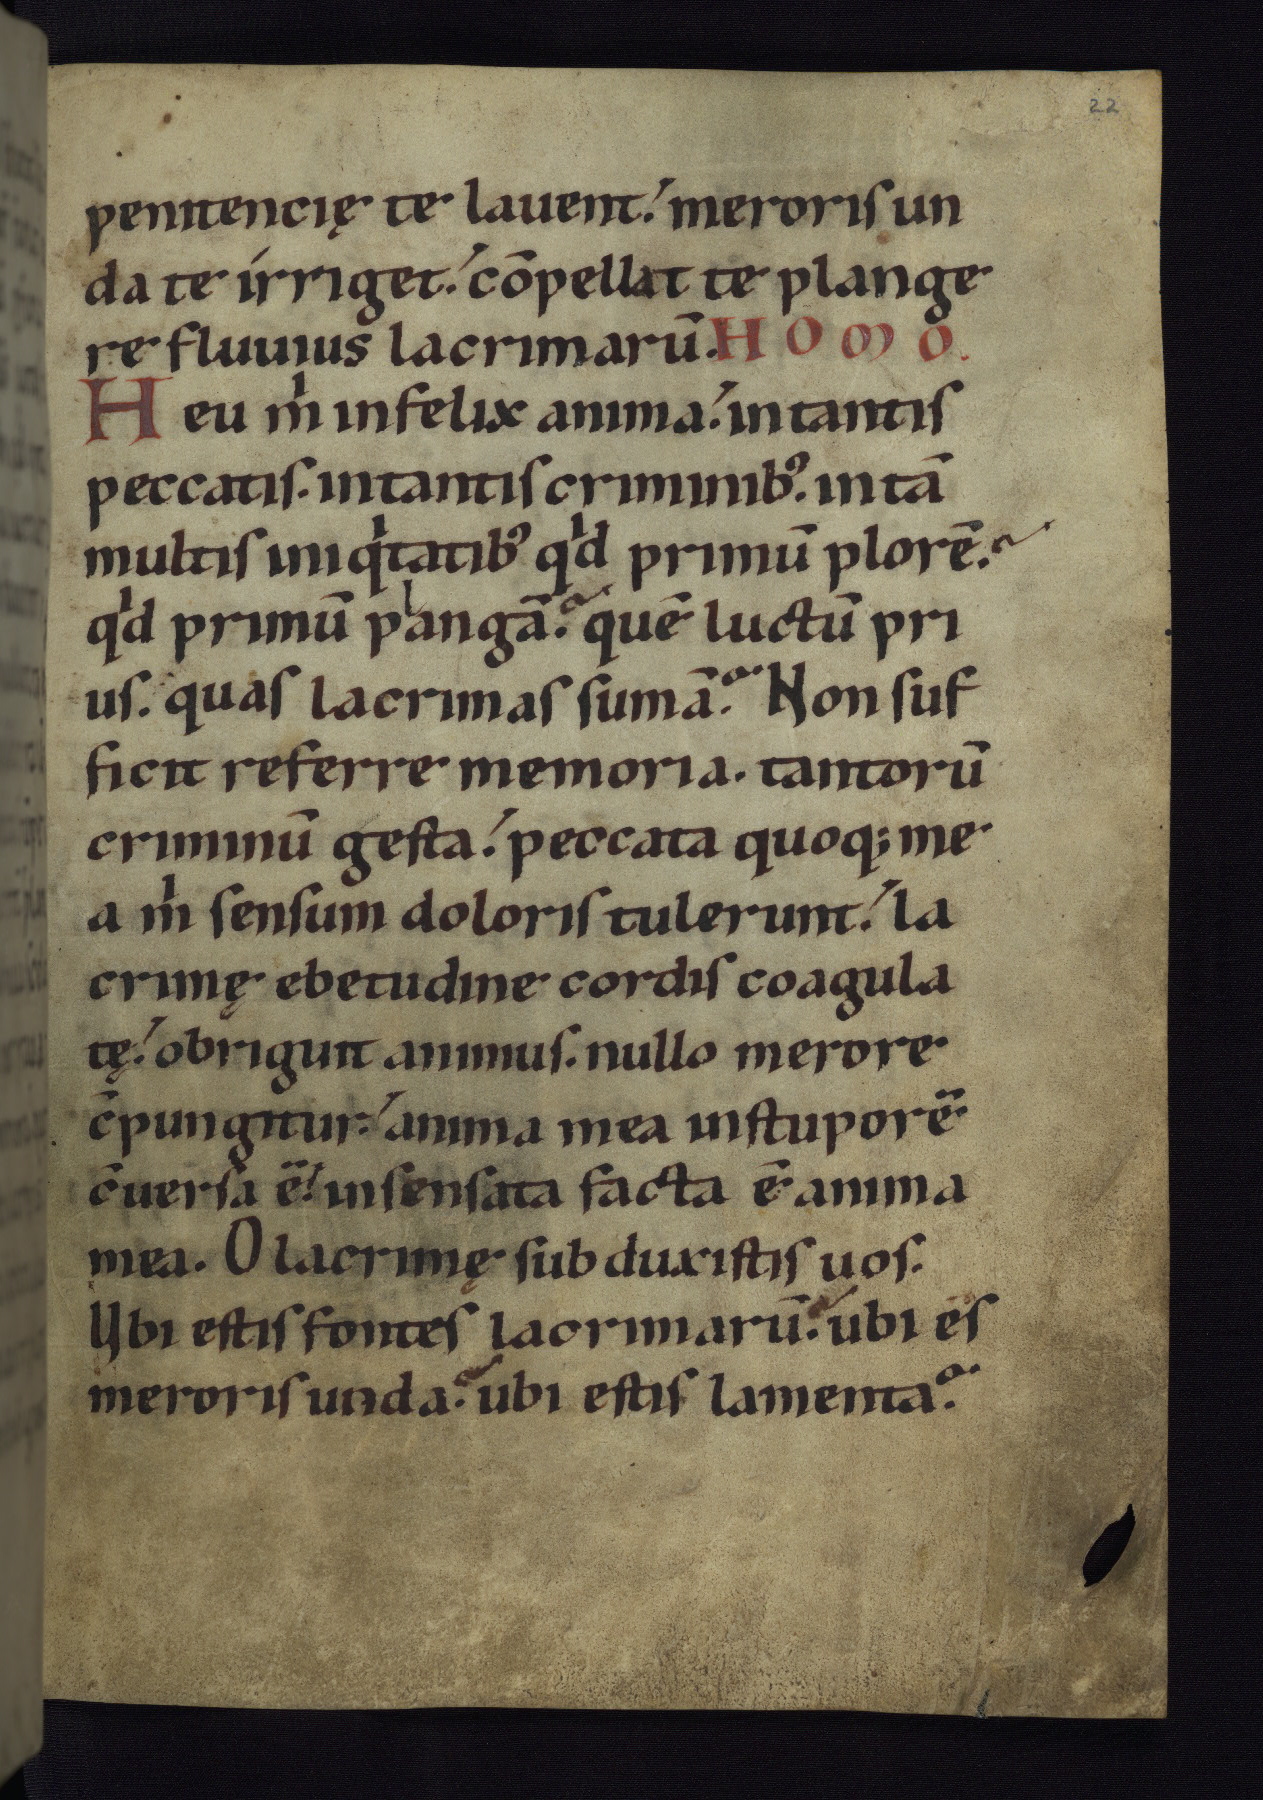 22
penitencię te lauent. meroris un
da te irriget. cōpellat te plange
re fluuius lacrimarū. HOMO.
Heu m̍ infelix anima. in tantis
peccatis. in tantis criminib⁹. in tā
multis iniq̍tatib⁹ q̍d primū plorē.
q̍d primū plangā. quē luctū pri
us. quas lacrimas sumā. Non suf
ficit referre memoria. tantorū
criminū gesta. peccata quoq; me
a m̍ sensum doloris tulerunt. la
crimę ebetudine cordis coagula
tę. obriguit animus. nullo merore
c̄pungitur. anima mea in stuporē
c̄uersa ē. insensata facta ē anima
mea. O lacrimę subduxistis uos.
Ubi estis fontes lacrimarū. ubi es
meroris unda. ubi estis lamenta.